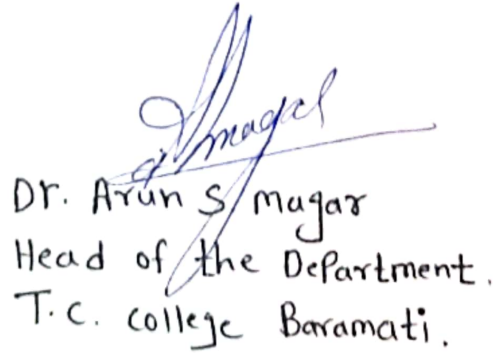 Magar
Dr. Arun S Magar
Head of the Department.
T.C. college Baramati.